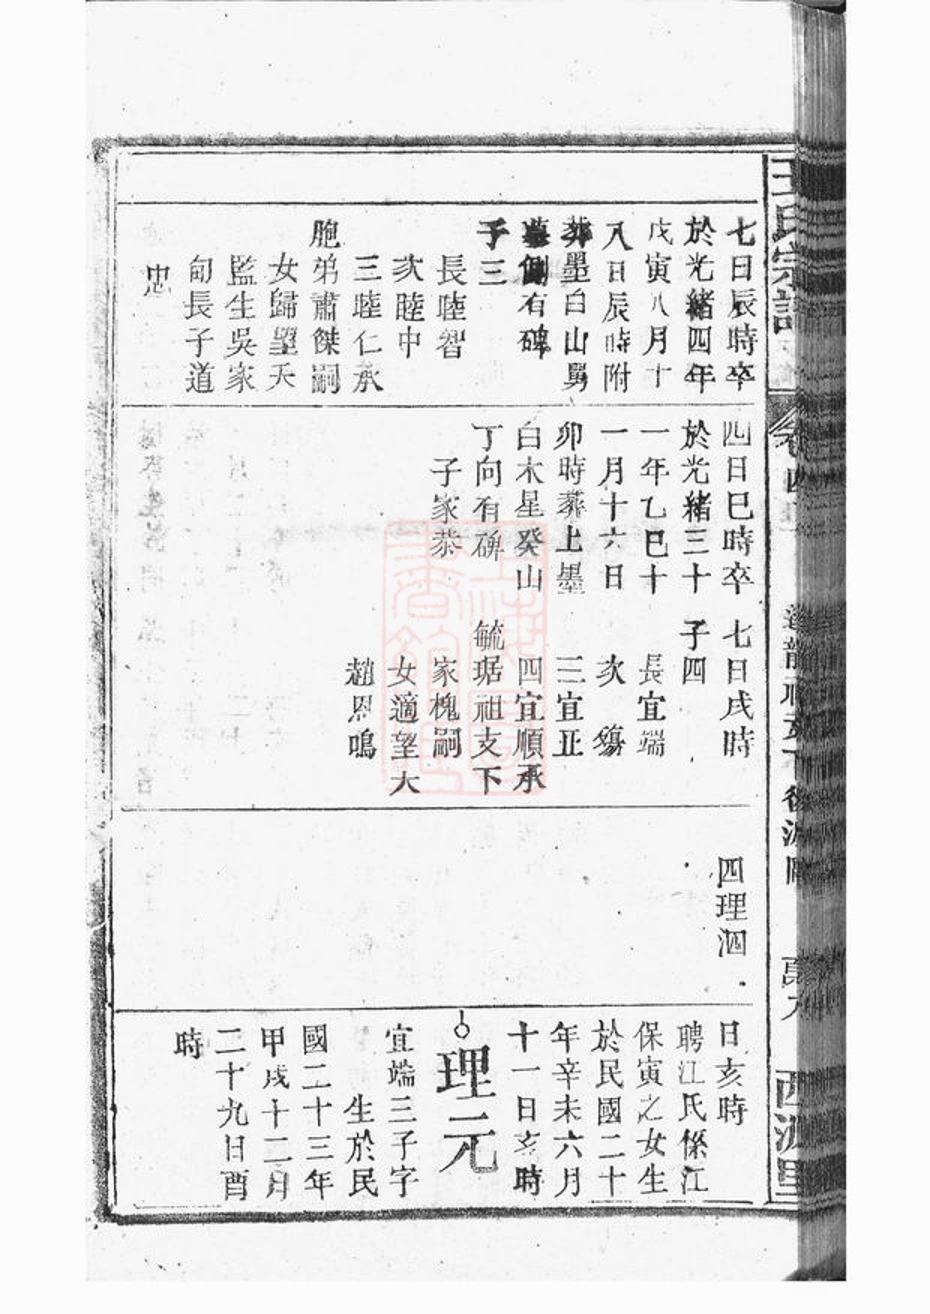 王氏宗譜
卷四
西源里
七日辰時卒
於光緒四年
戊寅八月十
八日辰時附
葬墨白山舅
墓側有碑
子三
長睦智
次睦中
三睦仁承
胞弟肅傑嗣
女歸望天
監生吳家
訇長子道
忠
四日巳時卒
於光緒三十
一年乙巳十
一月十六日
卯時葬上墨
白木星癸山
丁向有碑
子家恭
七日戌時
子四
長宜端
次
三宜正
四宜順承
毓琚祖支下
家槐嗣
女適望大
趙恩鳴
四理泗
日亥時
聘江氏係江
保寅之女生
於民國二十
年辛未六月
十一日亥時
理元
宜端三子字
生於民
國二十三年
甲戌十二月
二十九日酉
時